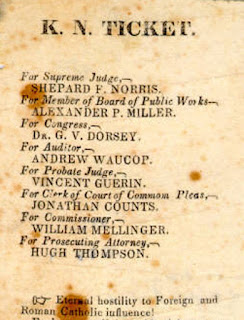 K. N. TICKET.
For Supreme Judge,—
SHEPARD F. NORRIS.
For Member of Board of Public Works—
ALEXANDER P. MILLER.
For Congress,—
DR. G. V. DORSEY.
For Auditor,—
ANDREW WAUCOP.
For Probate Judge,—
VINCENT GUERIN.
For Clerk of Court of Common Pleas,—
JONATHAN COUNTS.
For Commissioner,—
WILLIAM MELLINGER.
For Prosecuting Attorney,—
HUGH THOMPSON.
☞ Eternal hostility to Foreign and
Roman Catholic influence!